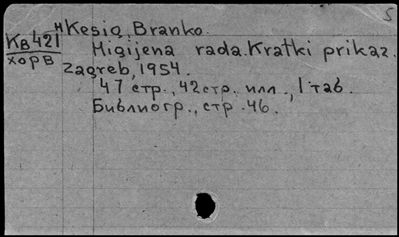 5
Kesiç, Branko.
Кв421
хорв
Higijena rada. Kratki prikaz.
Zagreb, 1954.
47 стр., 42 стр. илл., 1 таб.
Библиогр., стр. 46.